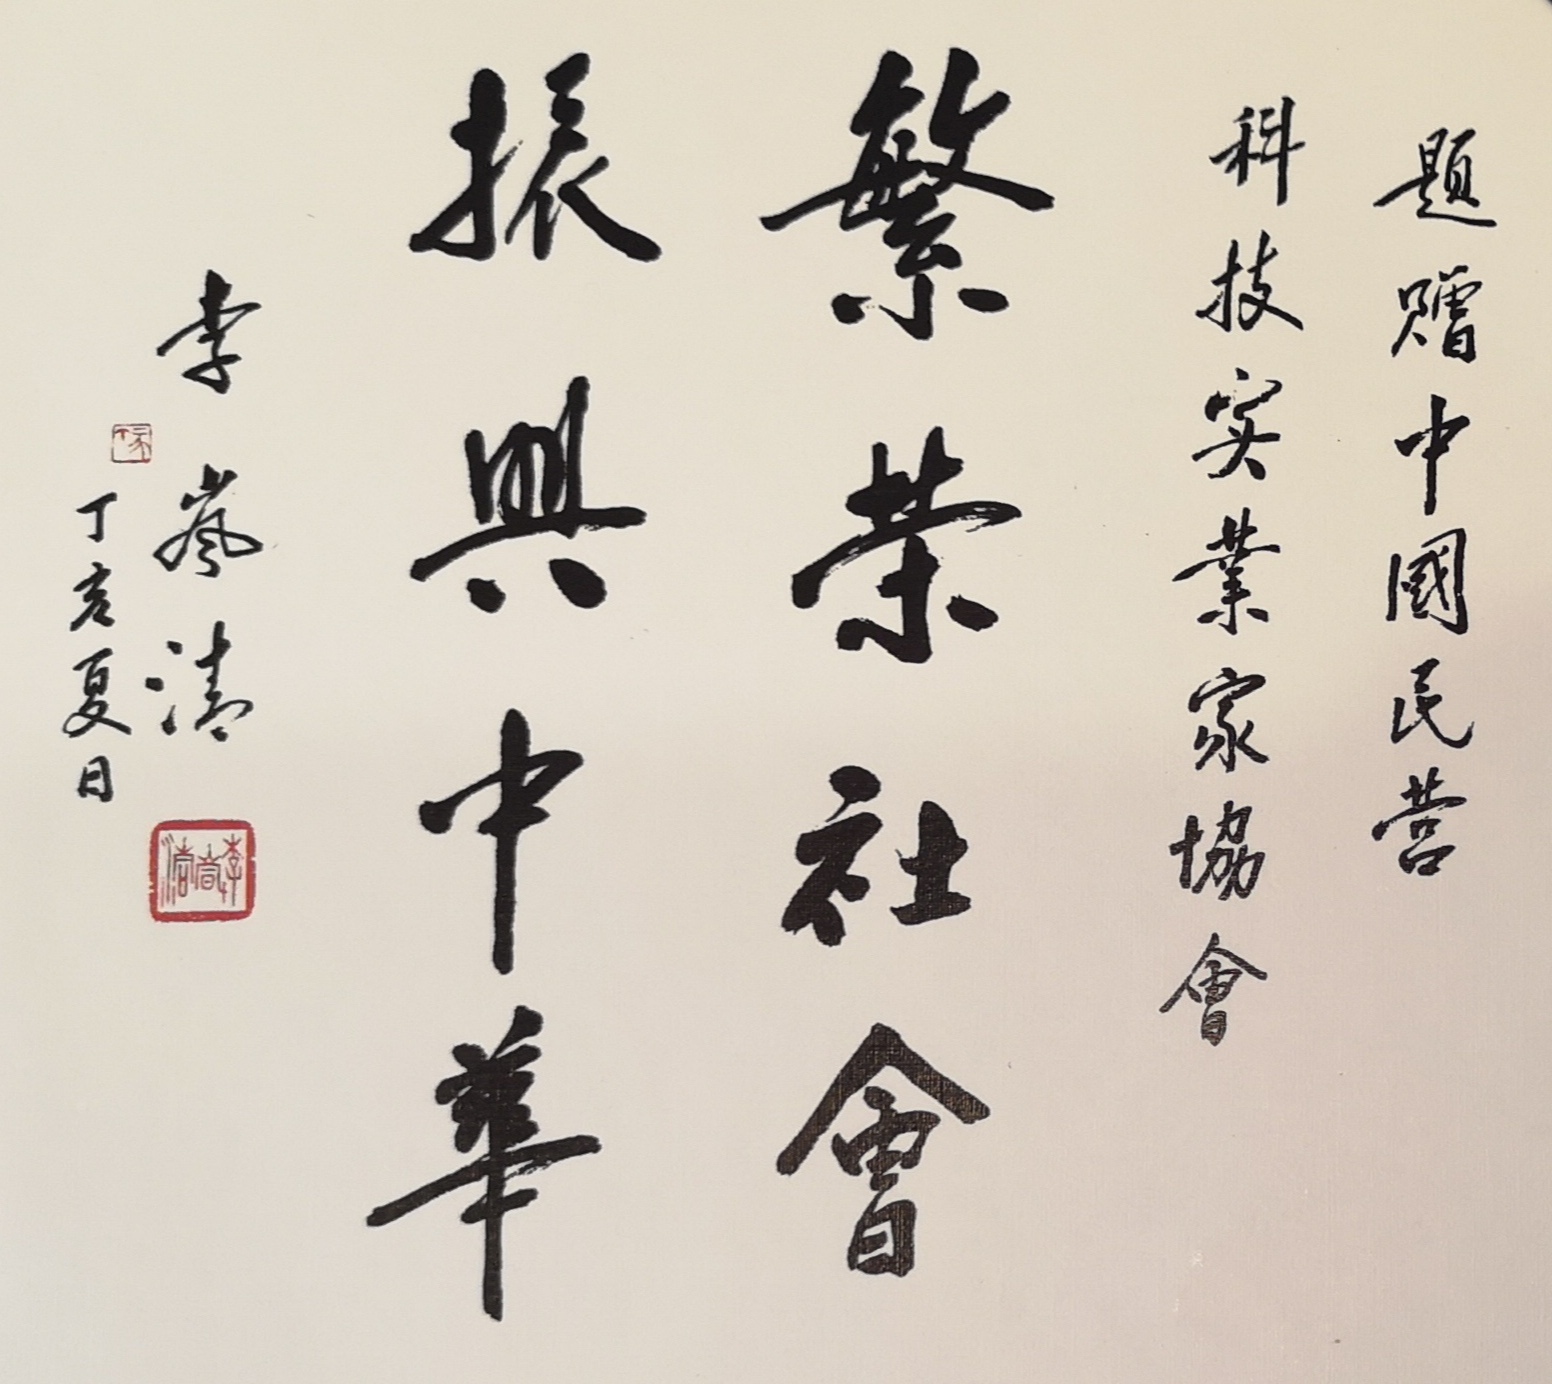 题赠中國民营
科技实業家協會
繁荣社會
振興中華
李岚清
丁亥夏日
李岚清